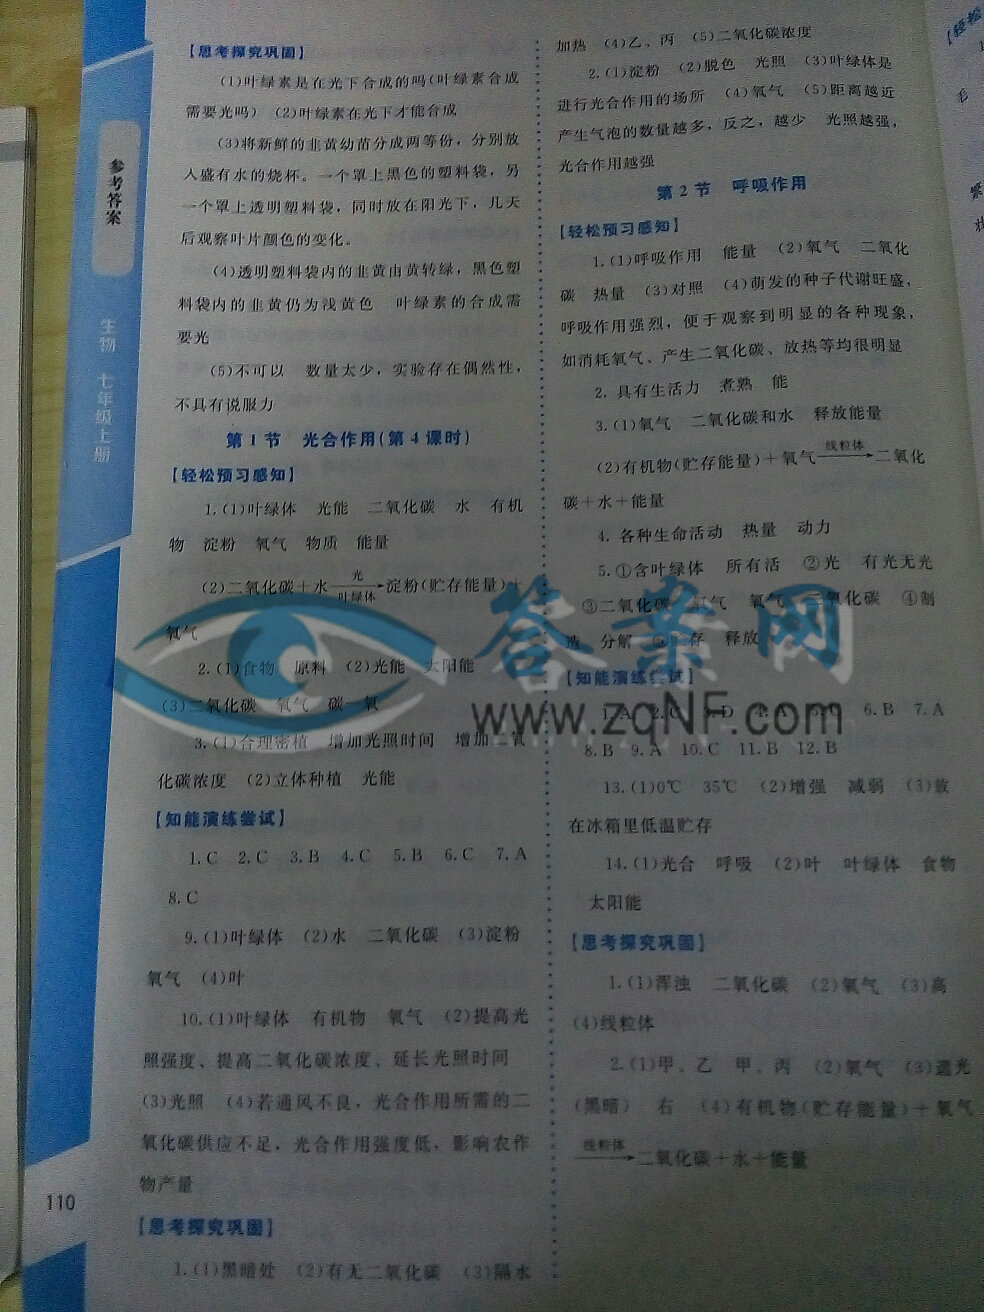 参考答案
生物 七年级上册
【思考探究巩固】
(1)叶绿素是在光下合成的吗(叶绿素合成
需要光吗) (2)叶绿素在光下才能合成
(3)将新鲜的韭黄幼苗分成两等份，分别放
入盛有水的烧杯。一个罩上黑色的塑料袋，另
一个罩上透明塑料袋，同时放在阳光下，几天
后观察叶片颜色的变化。
(4)透明塑料袋内的韭黄由黄转绿，黑色塑
料袋内的韭黄仍为浅黄色 叶绿素的合成需
要光
(5)不可以 数量太少，实验存在偶然性，
不具有说服力
第1节 光合作用(第4课时)
【轻松预习感知】
1.(1)叶绿体 光能 二氧化碳 水 有机
物 淀粉 氧气 物质 能量
(2)二氧化碳＋水 光 叶绿体 →淀粉(贮存能量)＋
氧气
2.(1)食物 原料 (2)光能 太阳能
(3)二氧化碳 氧气 碳—氧
3.(1)合理密植 增加光照时间 增加二氧
化碳浓度 (2)立体种植 光能
【知能演练尝试】
1.C 2.C 3.B 4.C 5.B 6.C 7.A
8.C
9.(1)叶绿体 (2)水 二氧化碳 (3)淀粉
氧气 (4)叶
10.(1)叶绿体 有机物 氧气 (2)提高光
照强度、提高二氧化碳浓度、延长光照时间
(3)光照 (4)若通风不良，光合作用所需的二
氧化碳供应不足，光合作用强度低，影响农作
物产量
【思考探究巩固】
1.(1)黑暗处 (2)有无二氧化碳 (3)隔水
110
加热 (4)乙、丙 (5)二氧化碳浓度
2.(1)淀粉 (2)脱色 光照 (3)叶绿体是
进行光合作用的场所 (4)氧气 (5)距离越近
产生气泡的数量越多，反之，越少 光照越强，
光合作用越强
第2节 呼吸作用
【轻松预习感知】
1.(1)呼吸作用 能量 (2)氧气 二氧化
碳 热量 (3)对照 (4)萌发的种子代谢旺盛，
呼吸作用强烈，便于观察到明显的各种现象，
如消耗氧气、产生二氧化碳、放热等均很明显
2. 具有生活力 煮熟 能
3.(1)氧气 二氧化碳和水 释放能量
(2)有机物(贮存能量)＋氧气 线粒体 →二氧化
碳＋水＋能量
4. 各种生命活动 热量 动力
5.①含叶绿体 所有活 ②光 有光无光
③二氧化碳 氧气 氧气 二氧化碳 ④制
造 分解 ⑤贮存 释放
【知能演练尝试】
1.A 2. D 4. 6.B 7.A
8.B 9.A 10.C 11.B 12.B
13.(1)0℃ 35℃ (2)增强 减弱 (3)放
在冰箱里低温贮存
14.(1)光合 呼吸 (2)叶 叶绿体 食物
太阳能
【思考探究巩固】
1.(1)浑浊 二氧化碳 (2)氧气 (3)高
(4)线粒体
2.(1)甲、乙 甲、丙 (2)氧气 (3)遮光
(黑暗) 右 (4)有机物(贮存能量)＋氧气
线粒体 →二氧化碳＋水＋能量
答案网
www.zqNF.com
【轻松